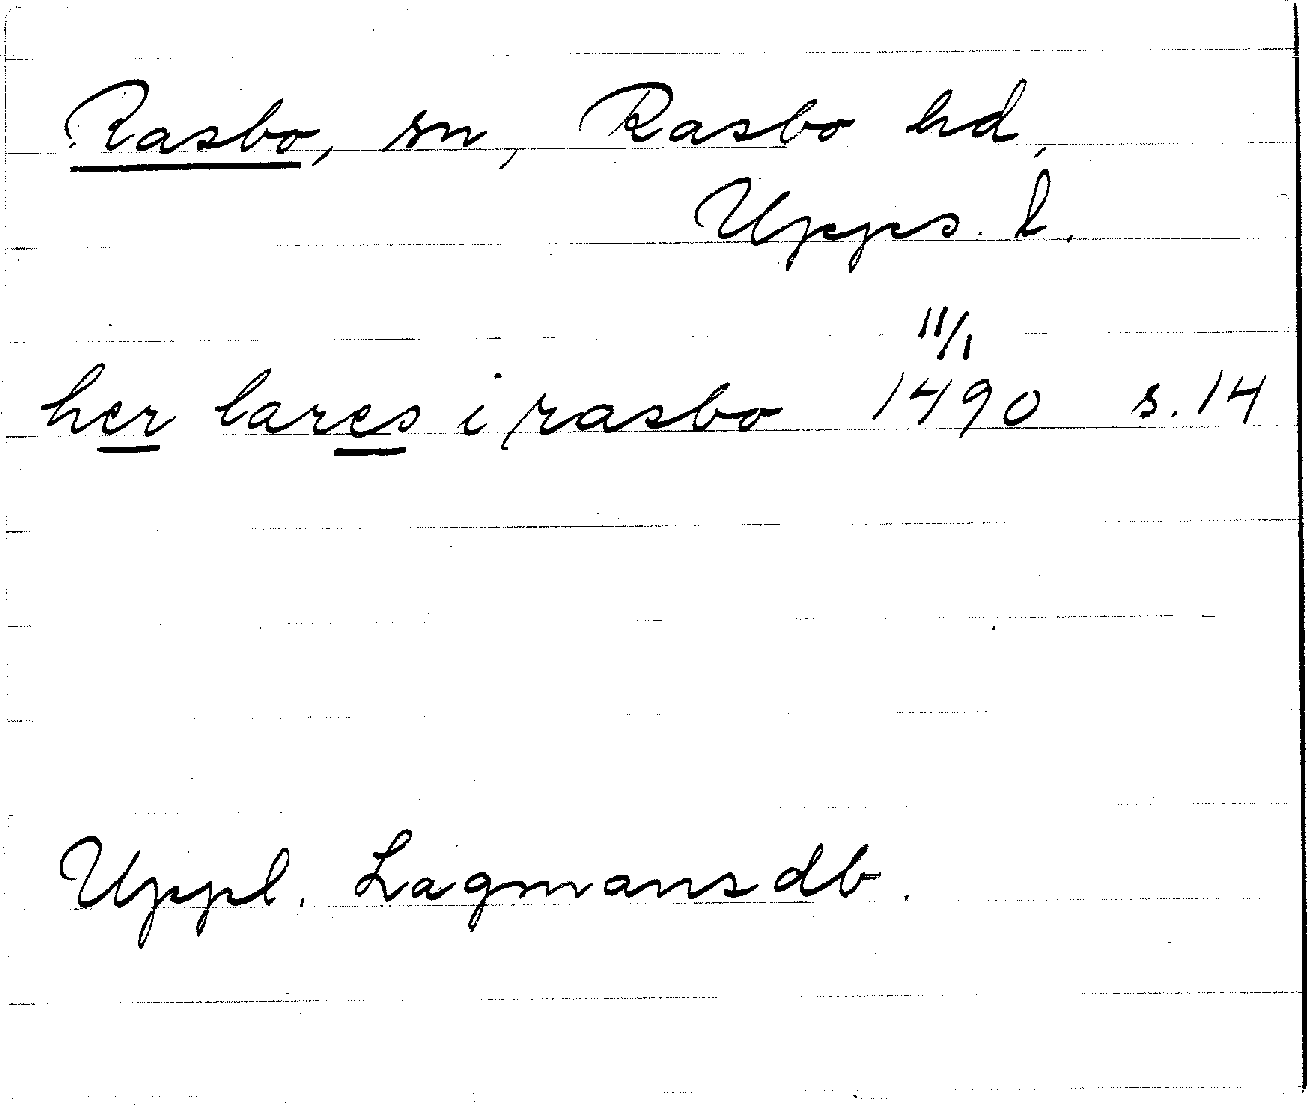 Rasbo, sn, Rasbo hd,
Upps. l.
11/1
her lares i rasbo 1490 s. 14
Uppl. Lagmansdb.